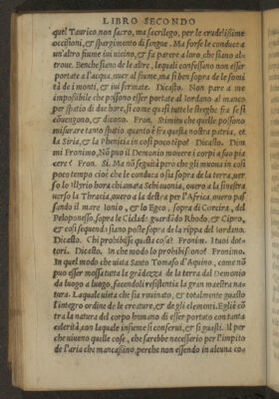 LIBRO SECONDO
quel Taurico non sacro, ma sacrilego, per le crudelissime
occisioni, et spargimento di sangue. Ma forse le conduce a
un'altro fiume lui vicino, et fa parere a loro che siano al-
troue. Benche siano de le altre, lequali confessano non esser
portate a l'acqua, ne al fiume, ma si ben sopra de le somi
tà de i monti, et iui fermate. Dicasto. Non pare a me
impossibile che possono esser portate al Iordano al manco
per spatio di due hore, si come quasi tutte le streghe fra le si
conuengono, et dicono. Fron. Stimi tu che quelle possono
misurare tanto spatio quanto è fra questa nostra patria, et
la Siria, et la Phenicia in cosi poco tempo? Dicasto. Dim
mi Fronimo, Nō puo il Demonio mouere i corpi a suo pia
cere? Fron. Si. Ma nō seguita però che gli muoua in cosi
poco tempo cioè che le conduca o sia sopra de la terra, uer
so lo Illyrio hora chiamata Schiauonia, ouero a la sinestra
uerso la Thracia, ouero a la destra per l'Africa, ouero pas
sando il mare Ionio, et lo Egeo, sopra di Corcira, del
Peloponesso, sopra le Ciclad: guardādo Rhodo, et Cipro,
et cosi sequendo siano poste sopra de la rippa del Iordano.
Dicasto. Chi prohibisse questa cosa? Fronim. I tuoi dot-
tori. Dicasto. In che modo lo prohibisseno? Fronimo.
In quel modo che uieta Santo Tomaso d'Aquino, come nō
puo esser mossa tutta la grādezza de la terra dal Demonio
da luogo a luogo, facendoli resistentia la gran maestra na-
tura. Laquale uieta che sia rouinato, et totalmente guasto
l'integro ordine de le creature, et de gli elementi. Egliè cō
tra la natura del corpo humano di esser portato con tanta
celerità, con laquale insieme si conserui, et si guasti. Il per
che uiueno quelle cose, che sarebbe necessario per l'impito
de l'aria che mancassino, perche non essendo in alcuna co-